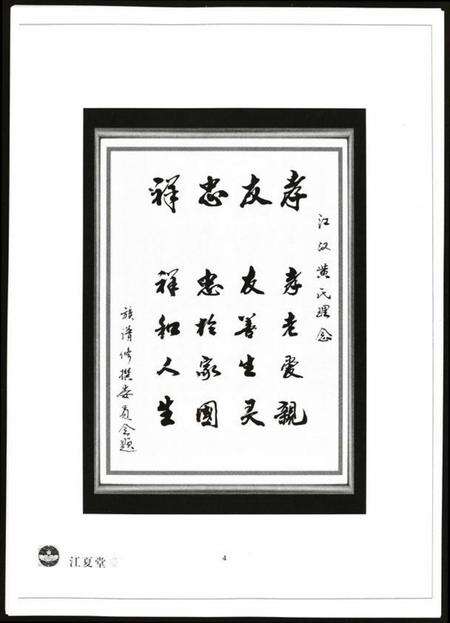 江汉黄氏理念
孝 孝老爱亲
友 友善生灵
忠 忠於家國
祥 祥和人生
族谱修撰委员会题
江夏堂
4